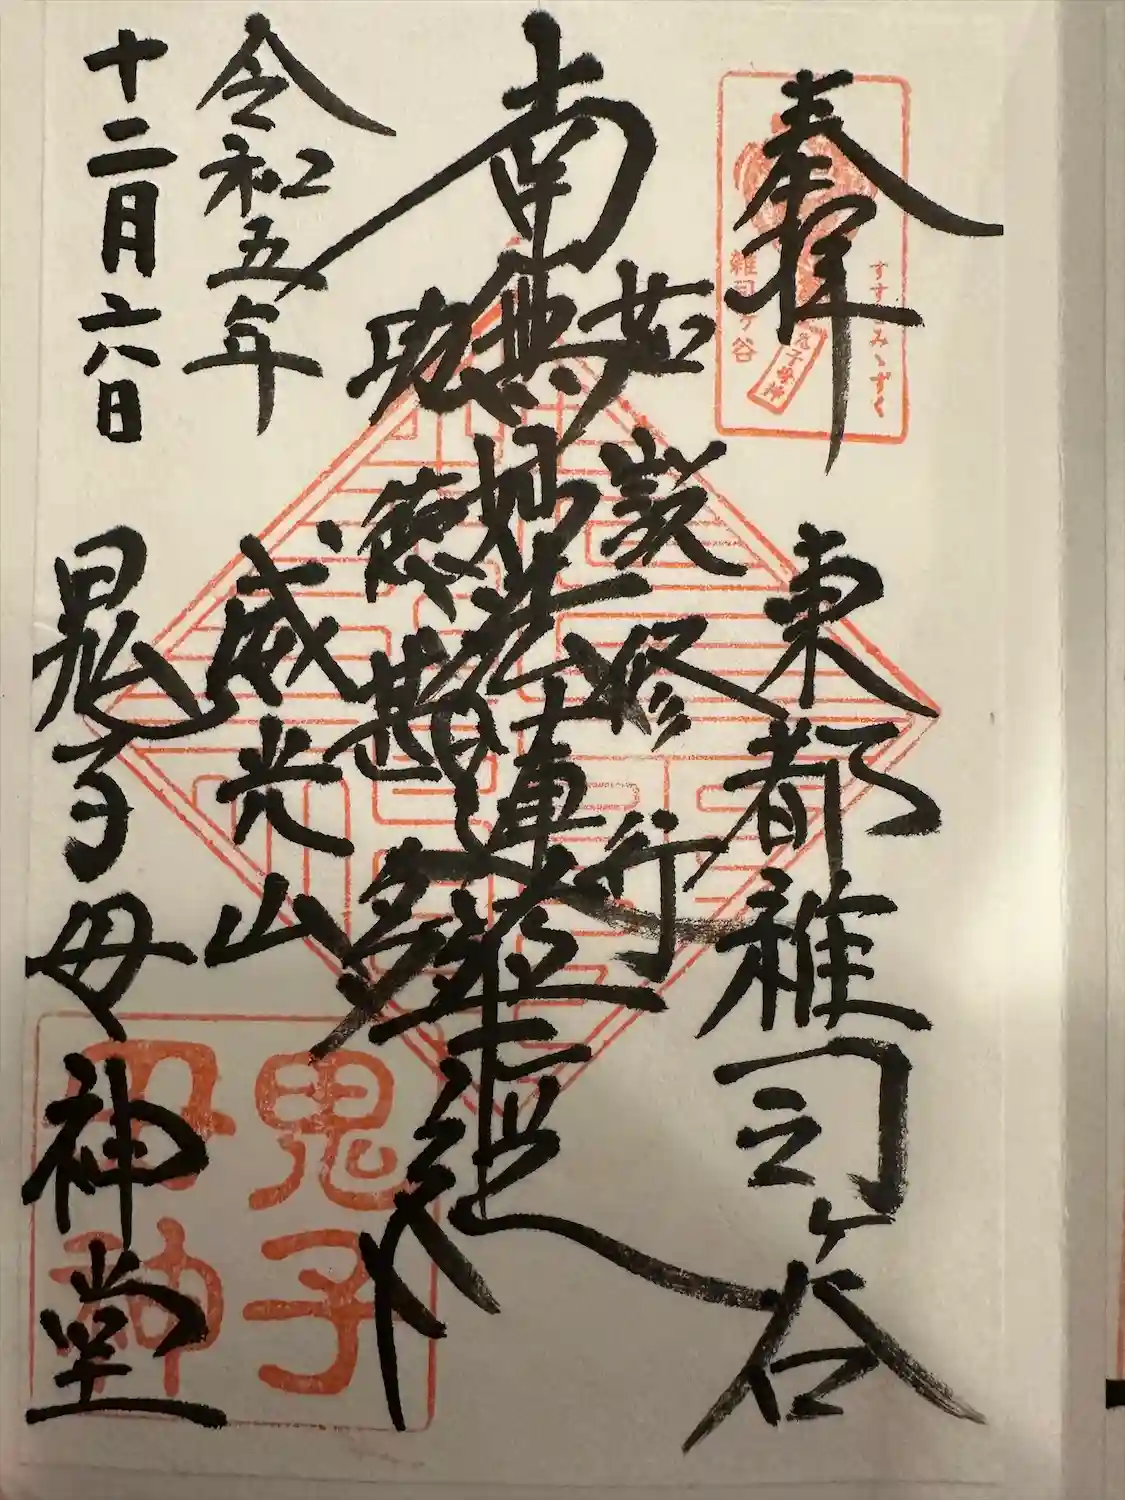 奉拝
東都雑司ヶ谷
すすきみゝずく
雑司ヶ谷
鬼子母神
如説修行
南無妙法蓮華経
功徳甚多
令和五年
十二月六日
威光山
鬼子母神堂
鬼子母神